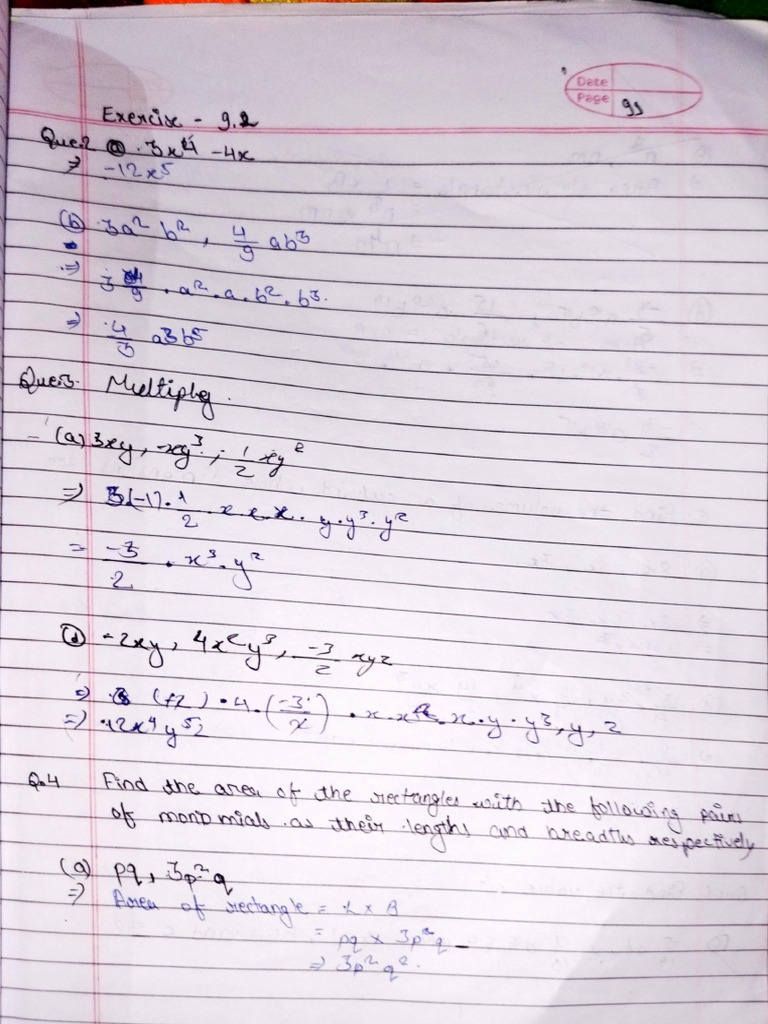 Date
Page 91
Exercise - 9.2
Que:2 (a) 3x⁴ -4x
⇒ -12x⁵
(b) 3a² b², 4/9 ab³
⇒ 3 4/9 · a² · a · b² · b³.
⇒ 4/3 a3b⁵
Que:3. Multiply.
(a) 3xy, -xy³, -1/2 xy²
⇒ 3(-1) · 1/2 x · x · x · y · y³ · y²
= -3/2 · x³ · y²
(d) -2xy, 4x²y³, -3/2 xyz
⇒ (+2) · 4 · (-3/x) · x · x² · x · y · y³, y, z
⇒ 12x⁴y⁵z
Q.4 Find the area of the rectangles with the following pairs
of monomials as their lengths and breadths respectively
(a) pq, 3p²q
⇒ Area of rectangle = L × B
= pq × 3p²q
⇒ 3p²q².